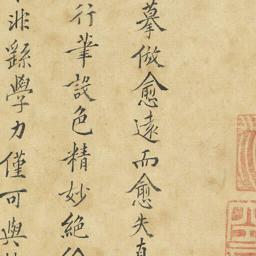 摹倣愈遠而愈失真
行筆設色精妙絕倫
非繇學力僅可與